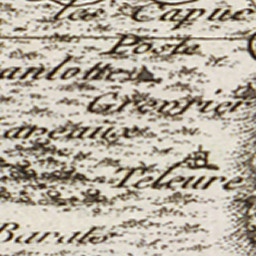 Les Capuc
Poste
anlotte
Grenrier
areaux
Teleure
Barats